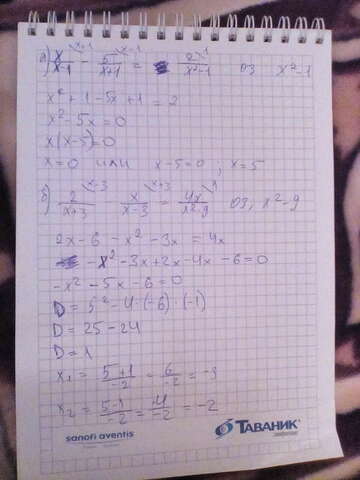 а) x/x-1 \x+1 - 5/x+1 \x-1 = 2/x²-1 \1 ОЗ x²-1
x² + 1 - 5x + 1 = 2
x² - 5x = 0
x(x-5)=0
x=0 или x-5=0 ; x=5
б) 2/x+3 \x-3 x/x-3 \x+3 = 4x/x²-9 \1 ОЗ, x²-9
2x-6 - x² - 3x = 4x
-x² - 3x + 2x - 4x - 6 = 0
-x² - 5x - 6 = 0
D = 5² - 4 · (-6) · (-1)
D = 25 - 24
D = 1
x₁ = 5+1/-2 = 6/-2 = -3
x₂ = 5-1/-2 = 4/-2 = -2
sanofi aventis ТАВАНИК